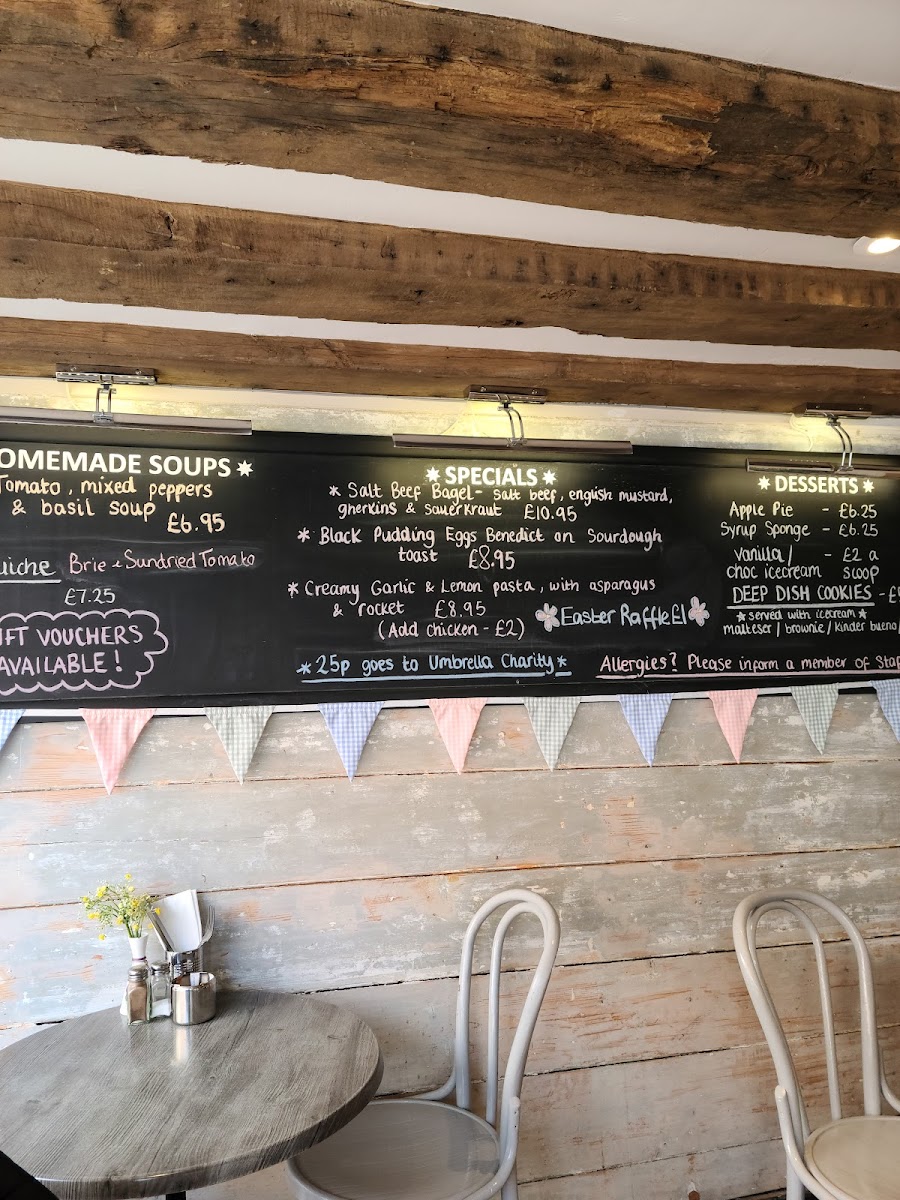 OMEMADE SOUPS
Tomato, mixed peppers
& basil soup £6.95
uiche Brie & Sundried Tomato
£7.25
IFT VOUCHERS
AVAILABLE!
* SPECIALS *
* Salt Beef Bagel - salt beef, english mustard,
gherkins & sauerkraut £10.95
* Black Pudding Eggs Benedict on Sourdough
toast £8.95
* Creamy Garlic & Lemon pasta, with asparagus
& rocket £8.95
(Add chicken - £2)
Easter Raffle £1
*25p goes to Umbrella Charity*
* DESSERTS *
Apple Pie - £6.25
Syrup Sponge - £6.25
Vanilla / - £2 a
choc icecream scoop
DEEP DISH COOKIES - £
* served with icecream *
malteser / brownie / kinder bueno /
Allergies? Please inform a member of Staf